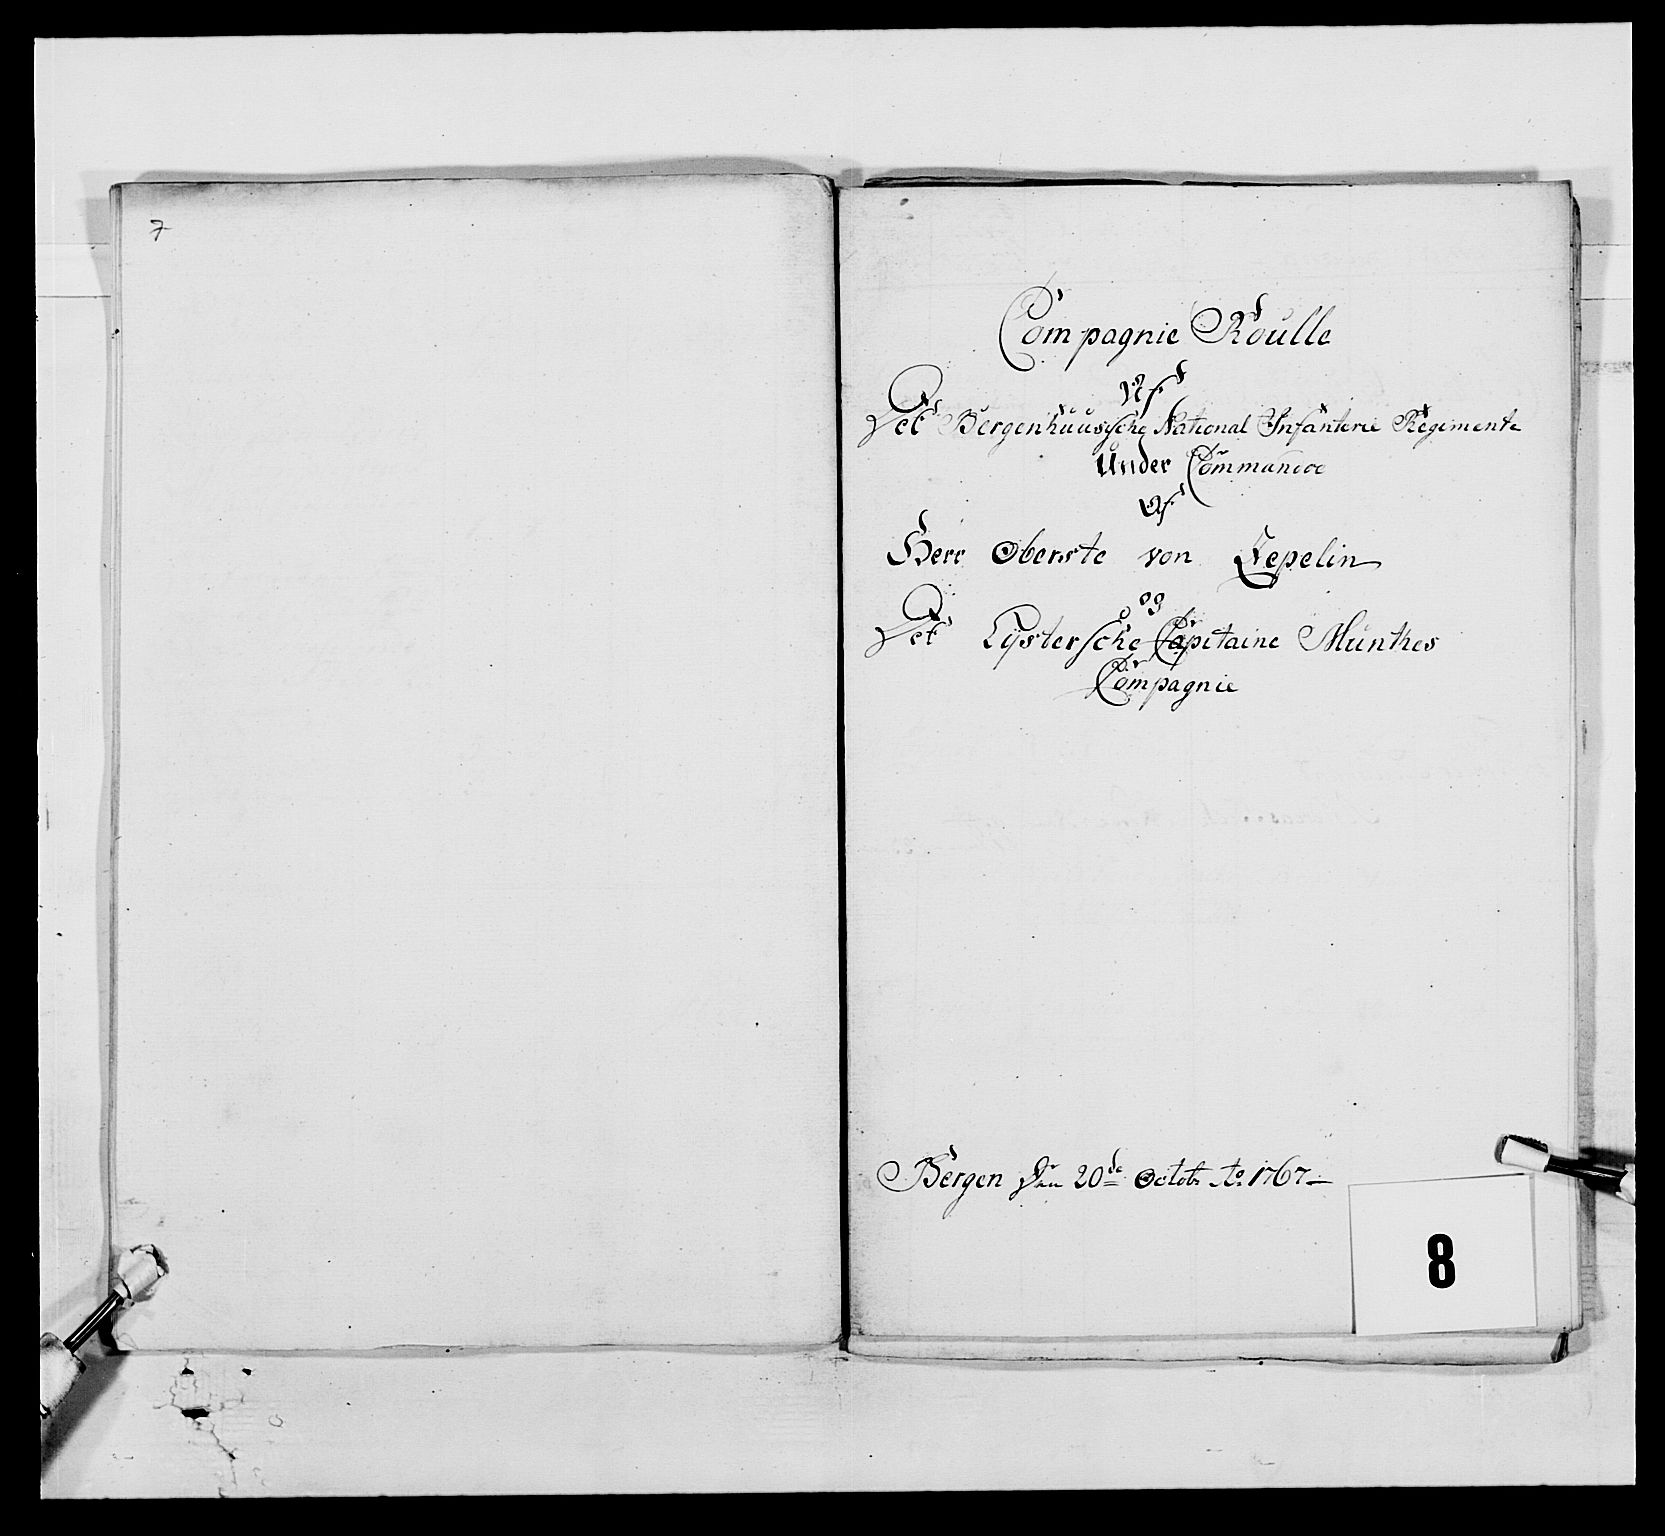 7
Compagnie Roulle
Af
Det Bergenhuusche National Infanterie Regimente
Under Commando
Af
Herr Oberste von Zepelin
og
Det Lystersche Capitaine Munthes
Compagnie
Bergen den 20de Octobr Ao. 1767
8